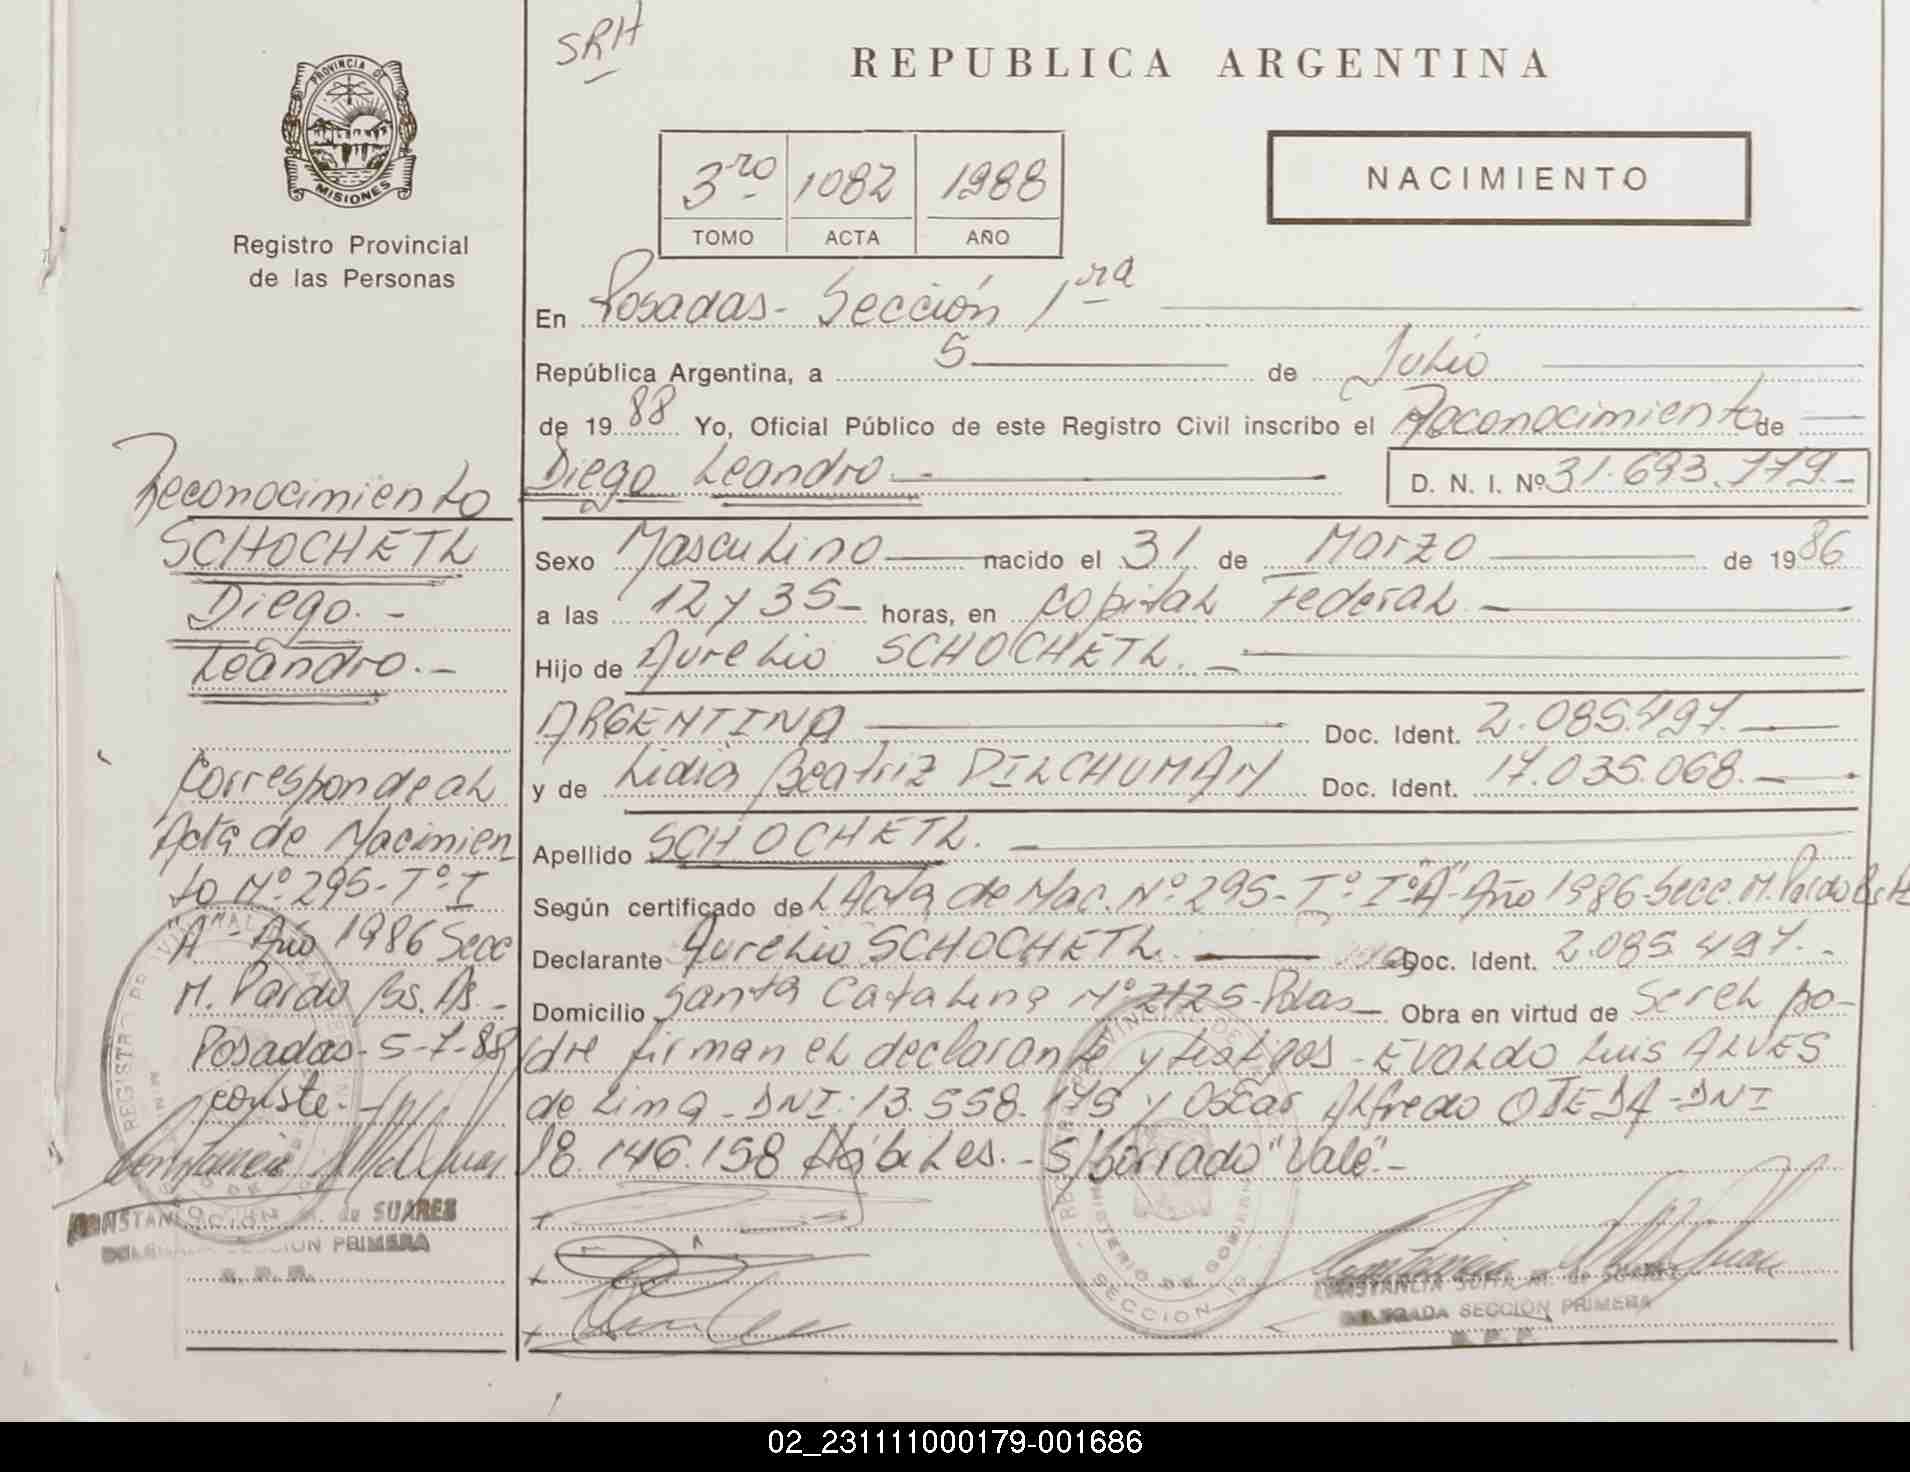 PROVINCIA DE
MISIONES
Registro Provincial
de las Personas
Reconocimiento
SCHOCHETL
Diego.-
Leandro.-
Corresponde al
Acta de Nacimien
to Nº 295-Tº I
A" Año 1986 Secc
M. Pardo Bs. As.-
Posadas-5-7-88
conste.-
SUARES
SECCION PRIMERA
SRH
REPUBLICA ARGENTINA
3ro 1082 1988
TOMO ACTA AÑO
NACIMIENTO
En Posadas- Sección 1ra
República Argentina, a 5 de Julio
de 1988 Yo, Oficial Público de este Registro Civil inscribo el Reconocimiento de
Diego Leandro.- D. N. I. Nº 31.693.779.-
Sexo Masculino nacido el 31 de Marzo de 1986
a las 12 y 35- horas, en Capital Federal.-
Hijo de Aurelio SCHOCHETL.-
ARGENTINA Doc. Ident. 2.085.497.-
y de Lidia Beatriz DILCHUMAN Doc. Ident. 17.035.068.-
Apellido SCHOCHETL.-
Según certificado de L/Acta de Nac. Nº 295-Tº Iº"A"-Año 1986-Secc. M. Pardo Bs As
Declarante Aurelio SCHOCHETL. Doc. Ident. 2.085.497.-
Domicilio Santa Catalina Nº 2125-Pdas- Obra en virtud de Ser el pa-
dre firman el declarante y testigos-EVALDO Luis ALVES
de Lima-DNI: 13.558.175 y OSCar Alfredo OJEDA-DNI
18.146.158 Hábiles.-S/borrado "Vale".-
SECCION 1a
CONSTANCIA SUAREZ
DELEGADA SECCION PRIMERA
02_231111000179-001686